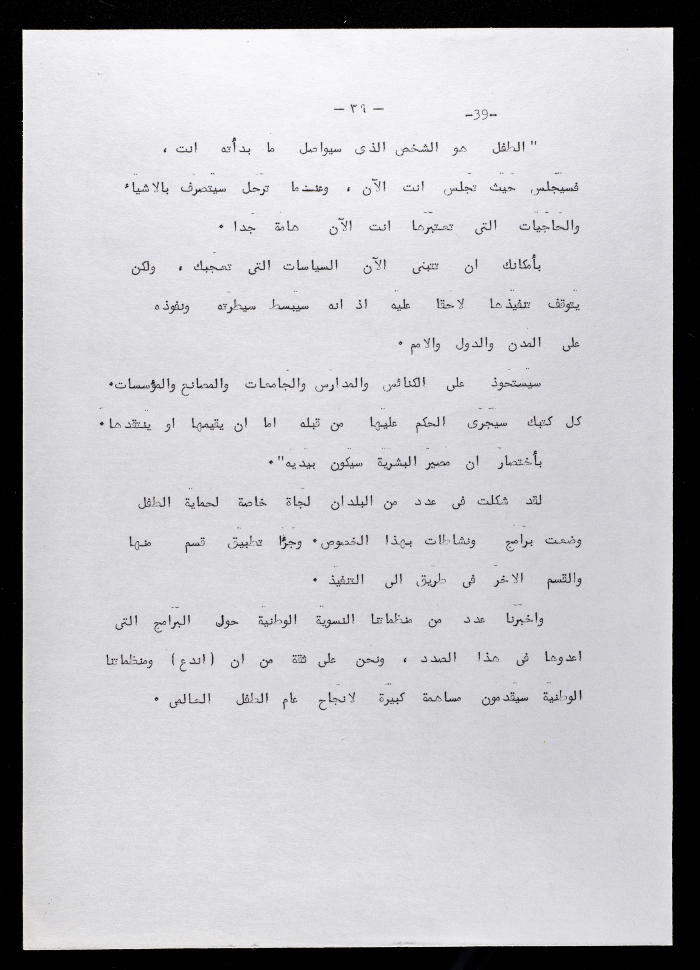 -٣٩-
-39-
" الطفل هو الشخص الذى سيواصل ما بدأته انت ،
فسيجلس حيث تجلس انت الآن ، وعندما ترحل سيتصرف بالاشياء
والحاجيات التى تعتبرها انت الآن هامة جدا .
بأمكانك ان تتبنى الآن السياسات التى تعجبك ، ولكن
يتوقف تنفيذها لاحقا عليه اذ انه سيبسط سيطرته ونفوذه
على المدن والدول والامم .
سيستحوذ على الكنائس والمدارس والجامعات والمصانع والمؤسسات.
كل كتبك سيجرى الحكم عليها من قبله اما ان يقيمها او ينتقدها .
بأختصار ان مصير البشرية سيكون بيديه" .
لقد شكلت فى عدد من البلدان لجاة خاصة لحماية الطفل
وضعت برامج ونشاطات بهذا الخصوص . وجرا تطبيق قسم منها
والقسم الاخر فى طريق الى التنفيذ .
واخبرنا عدد من منظماتنا النسوية الوطنية حول البرامج التى
اعدوها فى هذا الصدد ، ونحن على ثقة من ان (اندع) ومنظماتنا
الوطنية سيقدمون مساهمة كبيرة لانجاح عام الطفل العالمى .